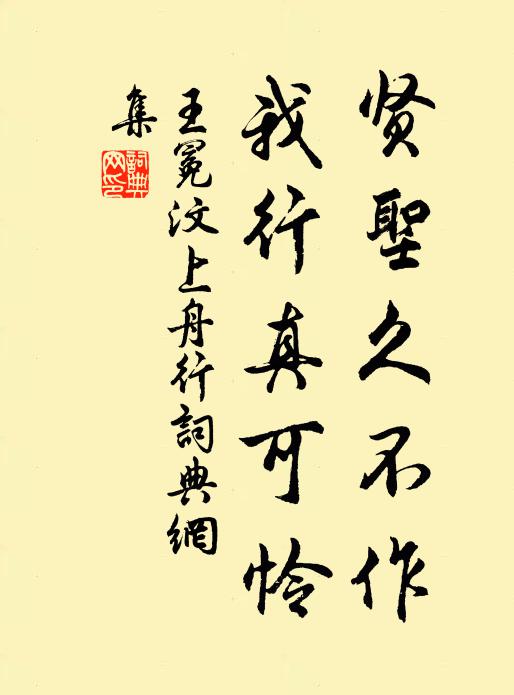 贤聖久不作
我行真可怜
王冕汶上舟行詞典網
集
詞典網印